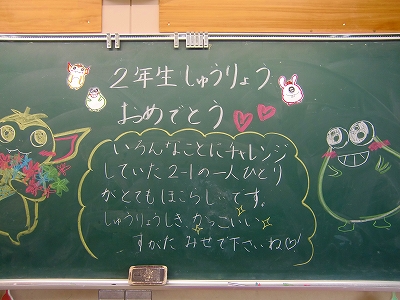 2年生 しゅうりょう
おめでとう♡♡
いろんなことにチャレンジ
していた2-1の一人ひとり
がとてもほこらしいです。
しゅうりょうしき、かっこいい
すがた みせて下さいね♡!